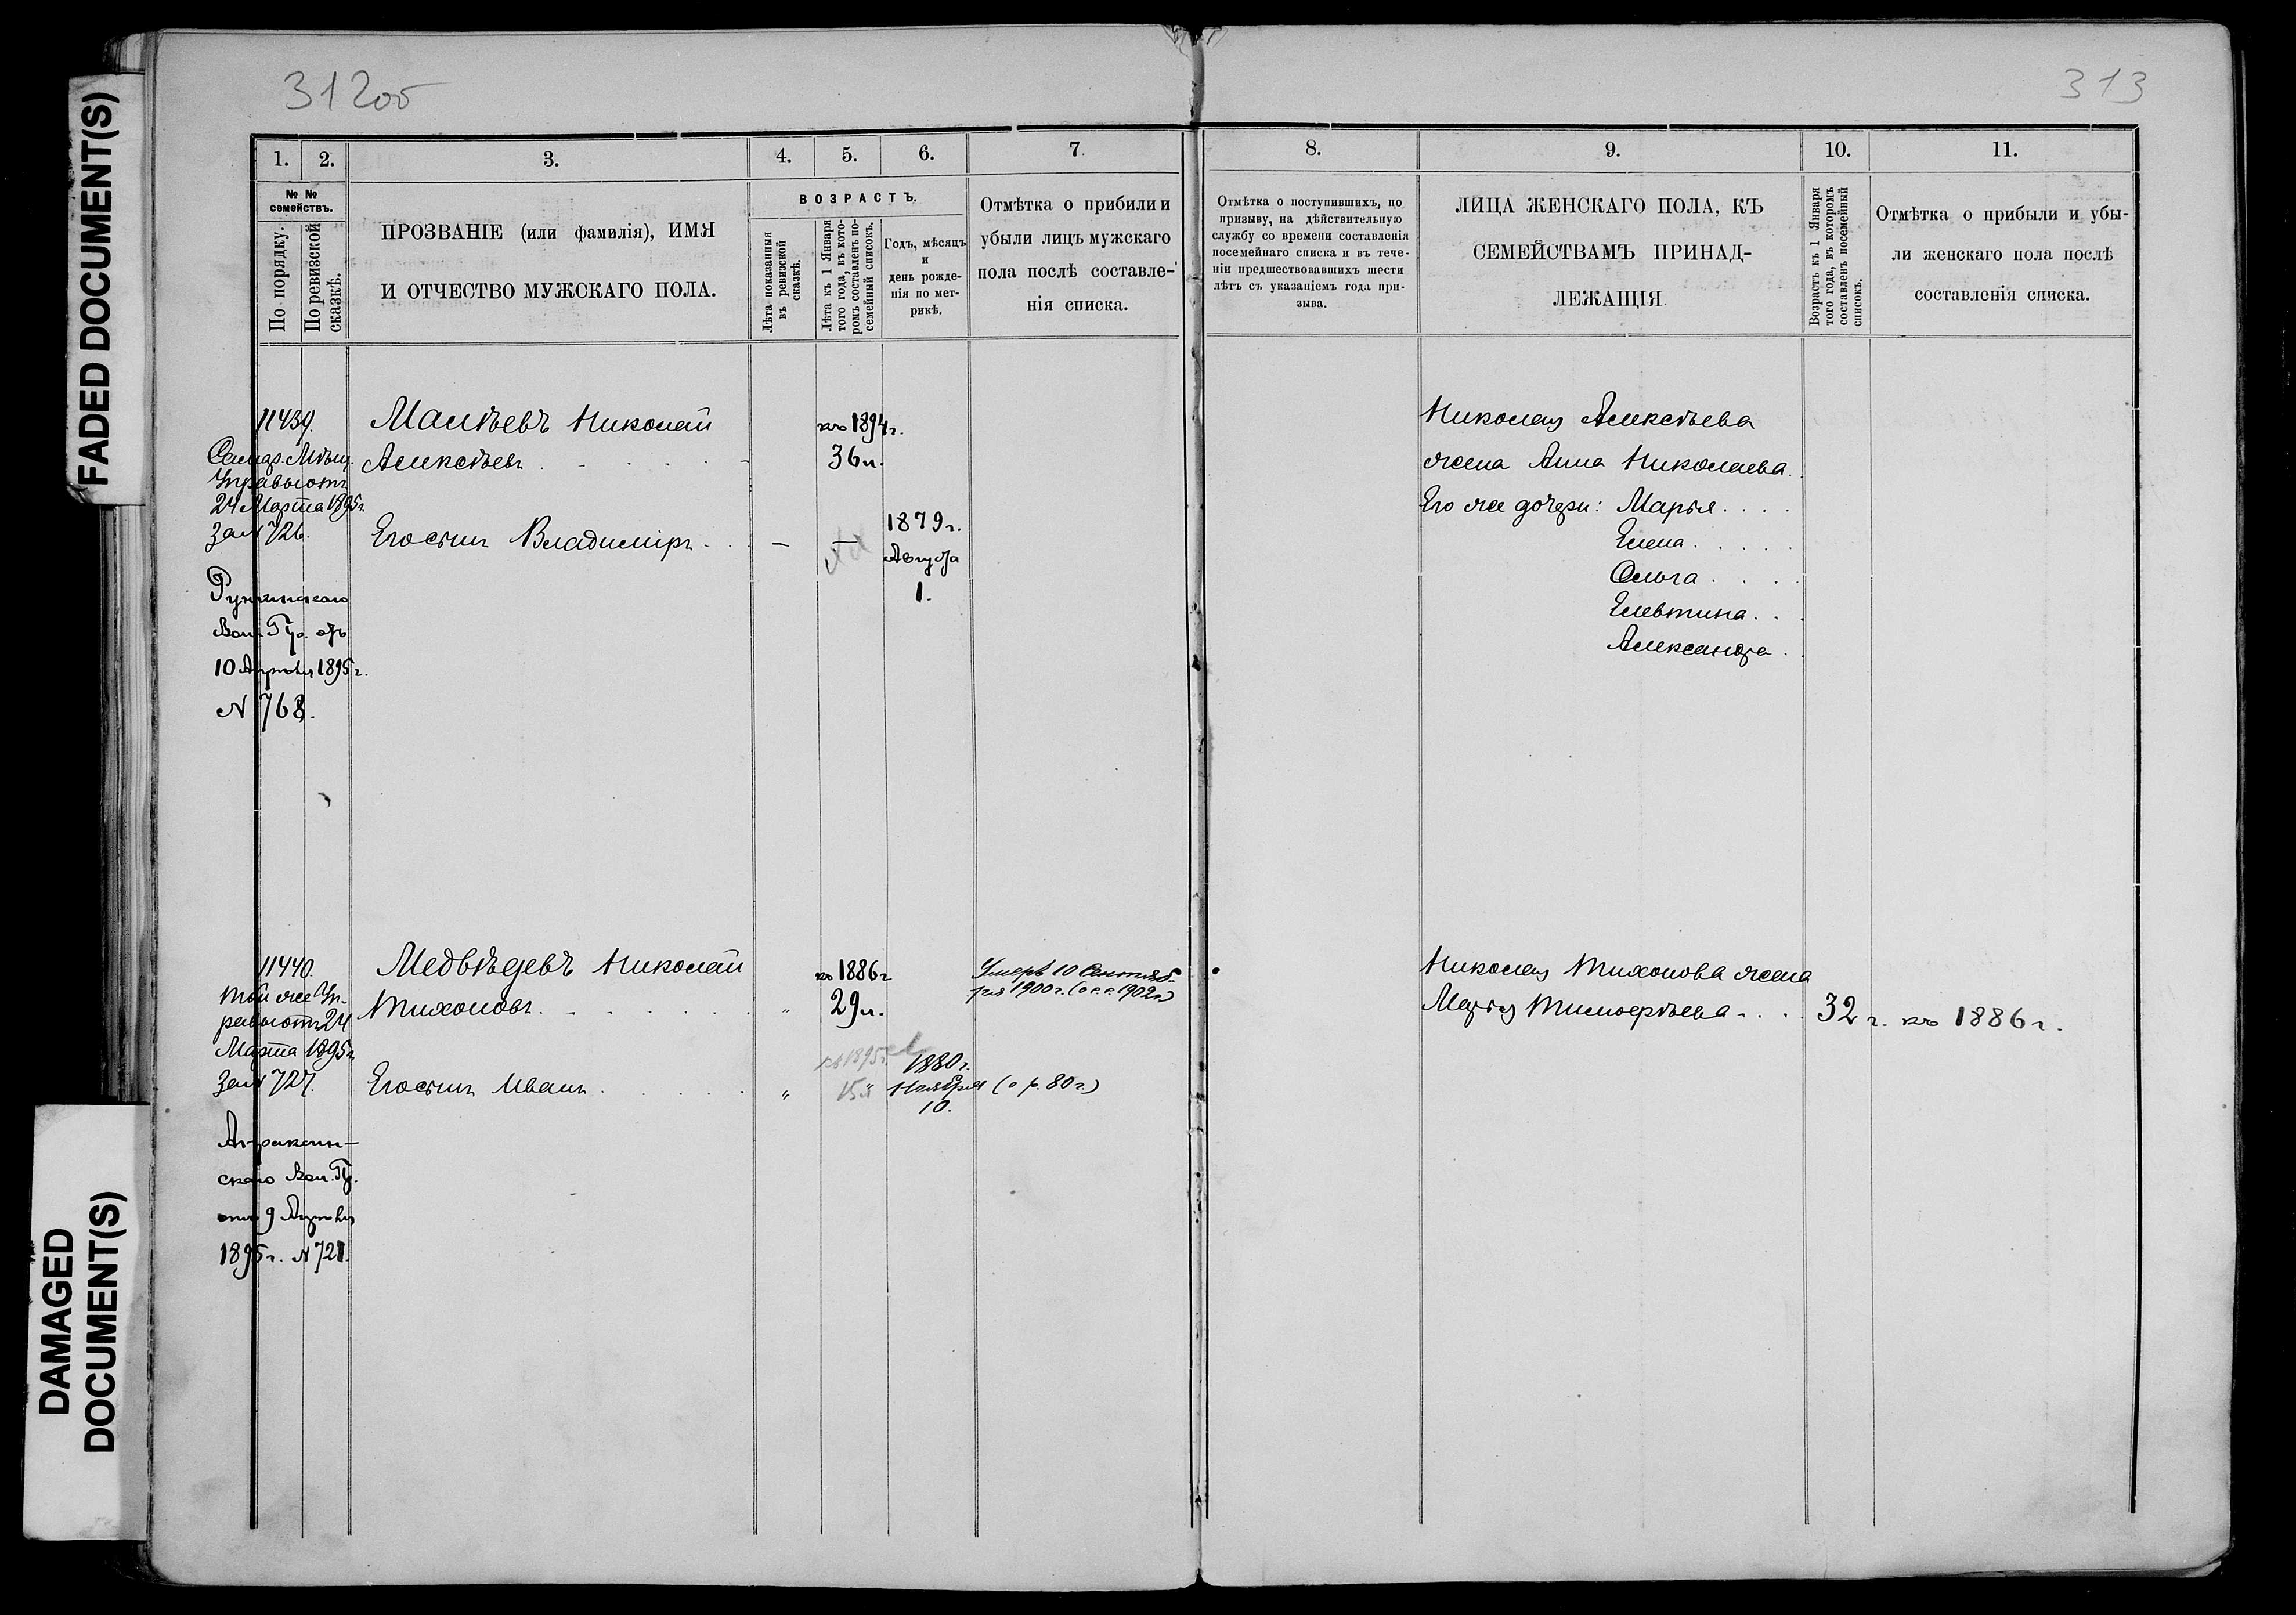 FADED DOCUMENT(S)
DAMAGED
DOCUMENT(S)
312об
313
1.
2.
3.
4.
5.
6.
7.
№ №
семействъ.
По порядку.
По ревизской
сказкѣ.
ПРОЗВАНІЕ (или фамилія), ИМЯ
И ОТЧЕСТВО МУЖСКАГО ПОЛА.
ВОЗРАСТЪ.
Лѣта показанныя
въ ревизской
сказкѣ.
Лѣта къ 1 Января
того года, въ кото-
ромъ составленъ по-
семейный списокъ.
Годъ, мѣсяцъ
и
день рожде-
нія по мет-
рикѣ.
Отмѣтка о прибыли и
убыли лицъ мужскаго
пола послѣ составле-
нія списка.
8.
9.
10.
11.
Отмѣтка о поступившихъ, по
призыву, на дѣйствительную
службу со времени составленія
посемейнаго списка и въ тече-
ніи предшествовавшихъ шести
лѣтъ съ указаніемъ года при-
зыва.
ЛИЦА ЖЕНСКАГО ПОЛА, КЪ
СЕМЕЙСТВАМЪ ПРИНАД-
ЛЕЖАЩІЯ
Возрастъ къ 1 Января
того года, въ которомъ
составленъ посемейный
списокъ.
Отмѣтка о прибыли и убы-
ли женскаго пола послѣ
составленія списка.
11439.
Самар. Мѣщ.
Управы отъ
24 Марта 1895г.
за N 726.
Вол. Пр. отъ
10 Апрѣля 1895г.
N 768.
Малѣевъ Николай
Алексѣевъ
Его сынъ Владиміръ
къ 1894г.
36 л.
1879 г.
Августа
1.
Николая Алексѣева
жена Анна Николаева
Его же дочери: Марья
Елена
Ольга
Елевтина
Александра
11440.
той же Уп-
равы отъ 24
Марта 1895г.
за N 727.
Апраксин-
скаго Вол. Пр.
отъ 9 Апрѣля
1895г. N 721.
Медвѣдевъ Николай
Тихоновъ
Его сынъ Иванъ
къ 1886г
29 л.
къ 1895г.
15 л
1880 г.
Ноября
10.
Умеръ 10 Сентяб-
ря 1900 г. (о с. с. 1902 г.)
(о р. 80 г.)
Николая Тихонова жена
Марья Тимофѣева
32 г. къ 1886 г.